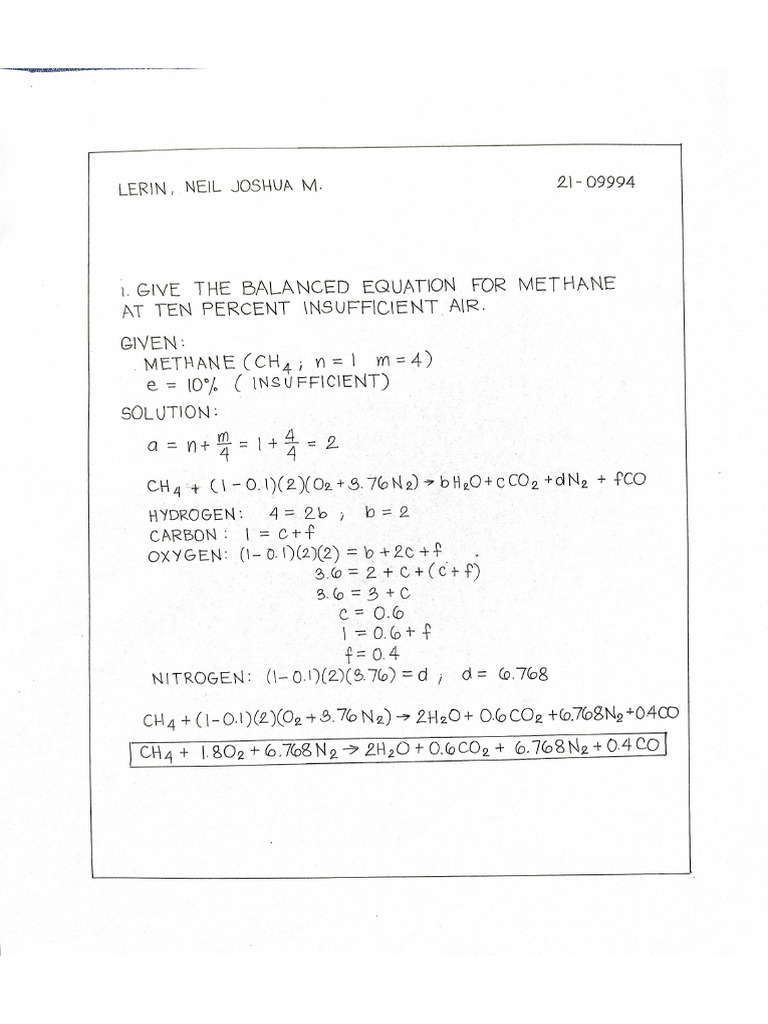 LERIN, NEIL JOSHUA M. 21-09994
1. GIVE THE BALANCED EQUATION FOR METHANE
AT TEN PERCENT INSUFFICIENT AIR.
GIVEN:
METHANE (CH4; n = 1 m = 4)
e = 10% (INSUFFICIENT)
SOLUTION:
a = n + m/4 = 1 + 4/4 = 2
CH4 + (1 - 0.1)(2)(O2 + 3.76 N2) → bH2O + cCO2 + dN2 + fCO
HYDROGEN: 4 = 2b ; b = 2
CARBON: 1 = c + f
OXYGEN: (1 - 0.1)(2)(2) = b + 2c + f
3.6 = 2 + c + (c + f)
3.6 = 3 + c
c = 0.6
1 = 0.6 + f
f = 0.4
NITROGEN: (1 - 0.1)(2)(3.76) = d ; d = 6.768
CH4 + (1-0.1)(2)(O2 + 3.76 N2) → 2H2O + 0.6 CO2 + 6.768N2 + 0.4CO
CH4 + 1.8O2 + 6.768N2 → 2H2O + 0.6CO2 + 6.768N2 + 0.4 CO